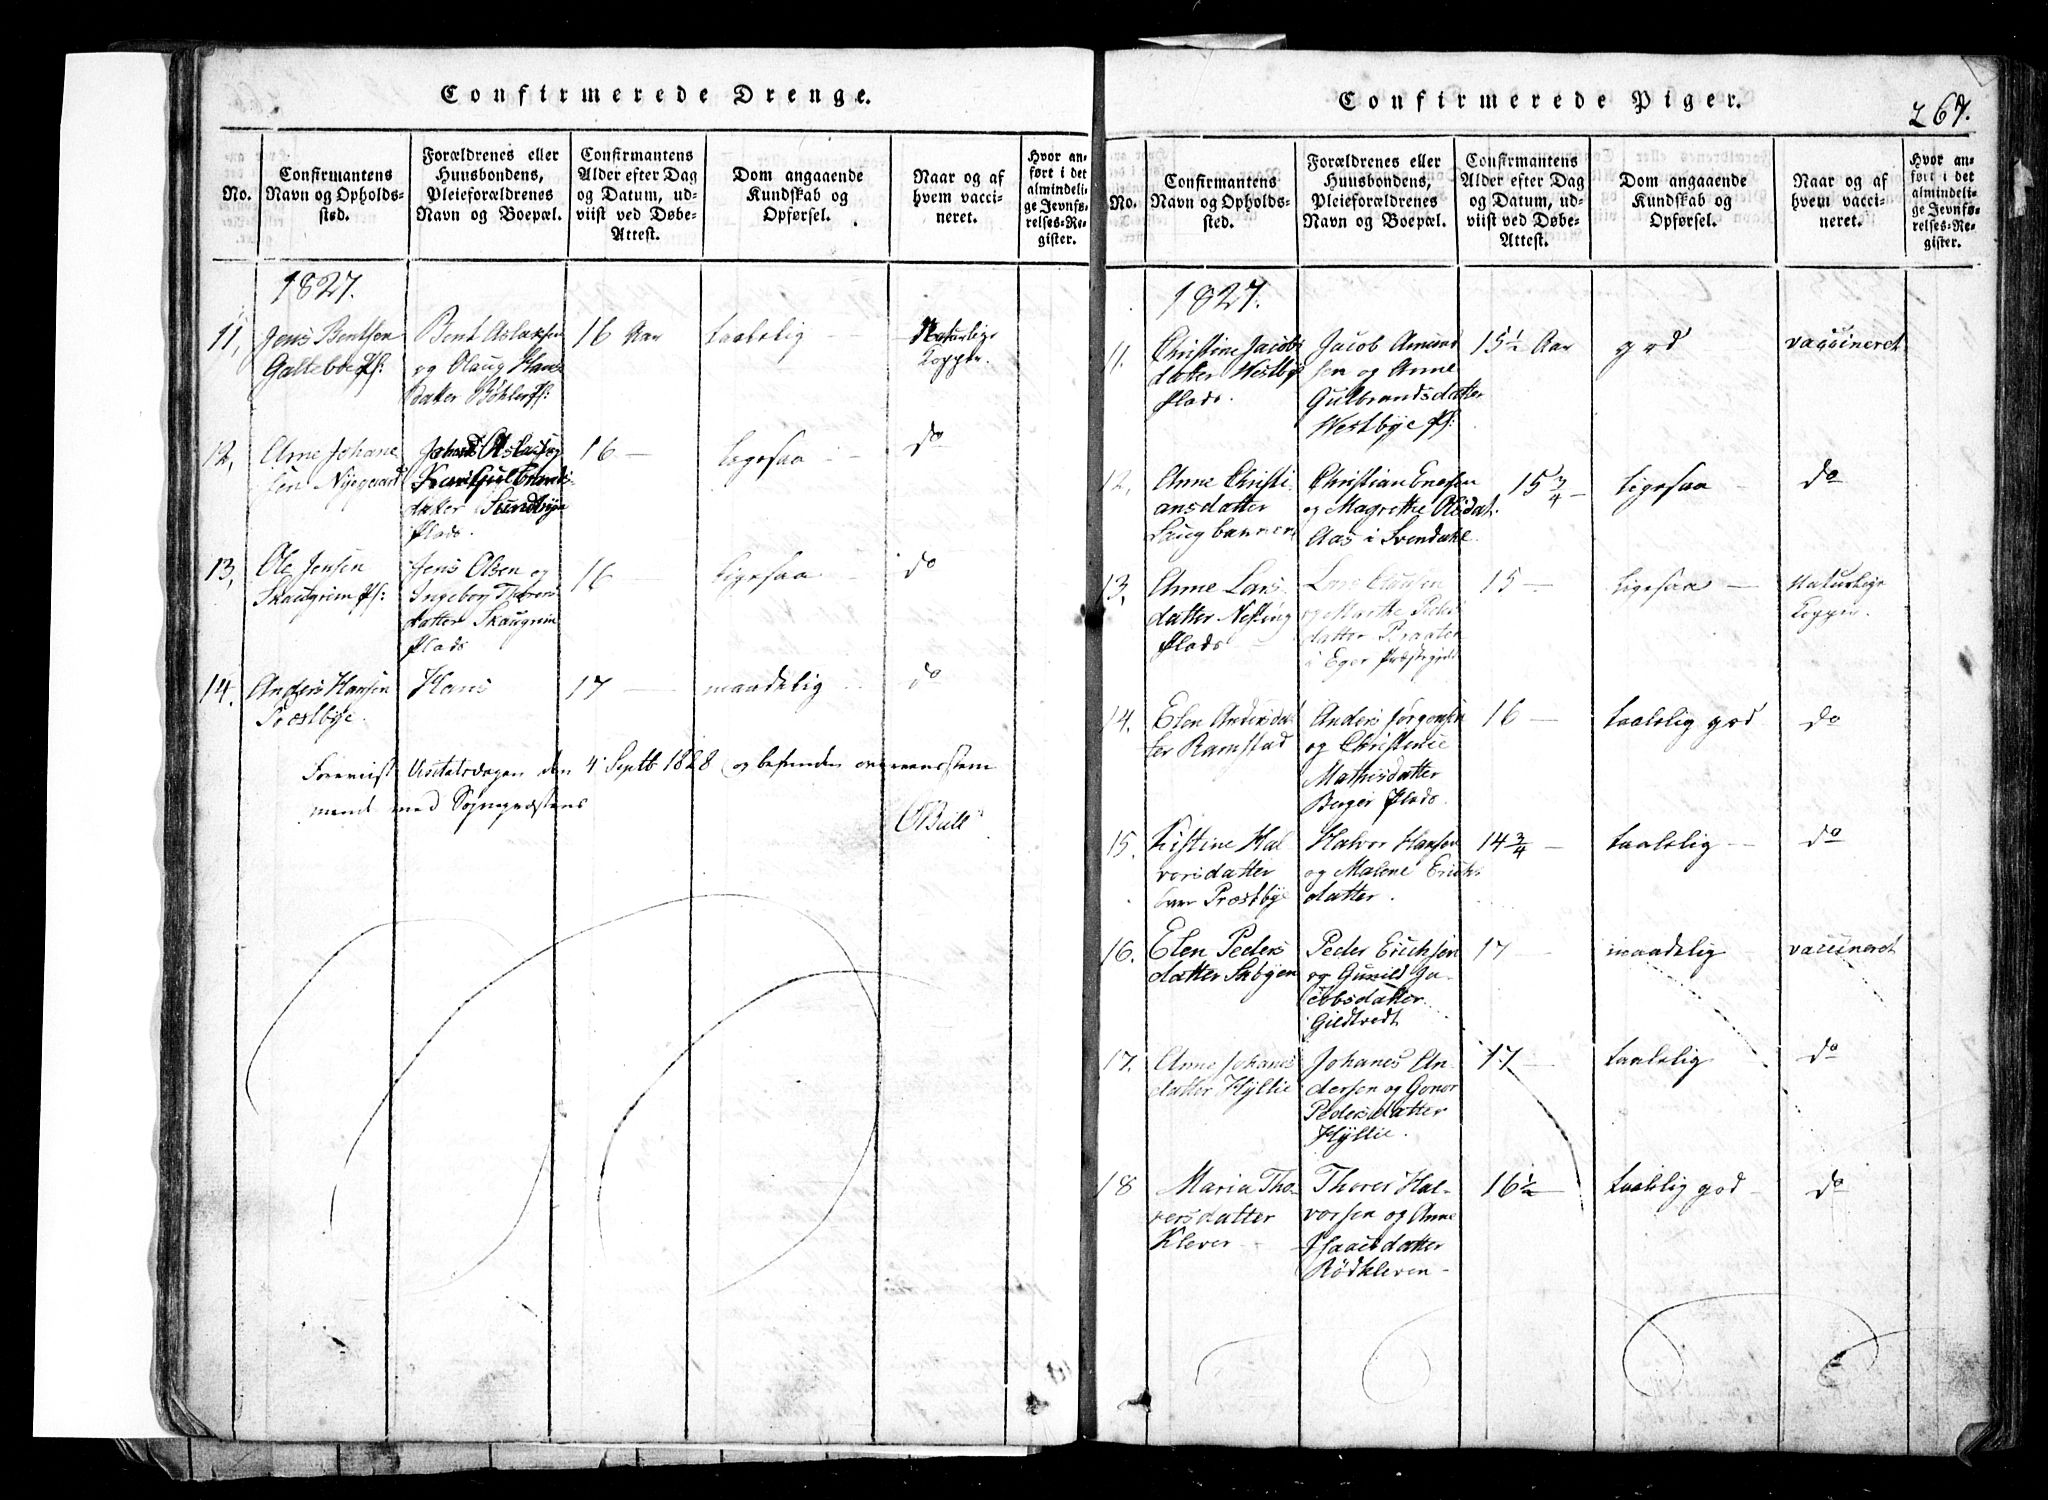 Confirmerede Drenge.
No.
Confirmantens Navn og Opholdssted.
Forældrenes eller Huusbondens, Pleieforældrenes Navn og Boepæl.
Confirmantens Alder efter Dag og Datum, udviist ved Døbe-Attest.
Dom angaaende Kundskab og Opførsel.
Naar og af hvem vaccineret.
Hvor anført i det almindelige Jevnførelses-Register.
1827.
11, Jens Bentsen
Bent Aslaksen
og Olaug Hans
datter Böhler Pl:
16 Aar
taalelig
Naturlige
Kopper.
12, Arne Johane
sen Nÿegaard
Gulbrands
datter Sundbÿe
Plads.
16 —
ligesaa
do
13, Ole Jensen
Skaugrim Pl:
Jens Olsen og
Ingebor Thores
datter Skaugrim
Plads
16 —
ligesaa
do
14. Anders Hansen
Præstbÿe.
Hans
17 —
maadelig
do
Foreviist Visitatsdagen den 4 Septb 1828 og befunden overeensstem
mende med Sognepræstens
Bull
Confirmerede Piger.
267.
No.
Confirmantens Navn og Opholdssted.
Forældrenes eller Huusbondens, Pleieforældrenes Navn og Boepæl.
Confirmantens Alder efter Dag og Datum, udviist ved Døbe-Attest.
Dom angaaende Kundskab og Opførsel.
Naar og af hvem vaccineret.
Hvor anført i det almindelige Jevnførelses-Register.
1827.
11. Christine Jacobs
datter Westbÿ
Plads.
Jacob Amund
sen og Anne
Gulbrandsdatter
Westbÿe Pl:
15½ Aar
god
vaccineret
12, Anne Christi
ansdatter
Christian Enersen
og Magrethe Olsdat.
Aas i Svendahl
15 3/4 —
ligesaa
do
13, Anne Lars
datter Nesting
Plads
Lars
og Marthe Peders
datter Braaten
i Eger Præstegjeld
15 —
ligesaa —
Naturlige
Kopper.
14. Elen Andersdat
ter Ramstad
Anders Jörgensen
og Christense
Mathisdatter
Berger Plads.
16 —
taalelig god
do
15. Kistine Hal
vorsdatter
Præstbÿe
Halvor Hansen
og Malene Erichs
datter.
14 3/4 —
taalelig —
do
16. Elen Peders
datter Sabÿen
Peder Erichsen
og Gunild Ja-
cobsdatter
Gildtvedt
17 —
maadelig
vaccineret
17. Anne Johanes
datter Hÿllie
Johanes An
dersen og Gonor
Pedersdatter
Hÿllie.
17 —
taalelig
do
18 Maria Tho
rersdatter
Klever —
Thorer Hal-
vorsen og Anne
Isaacsdatter
Rödkleven —
16½ —
taalelig god
do